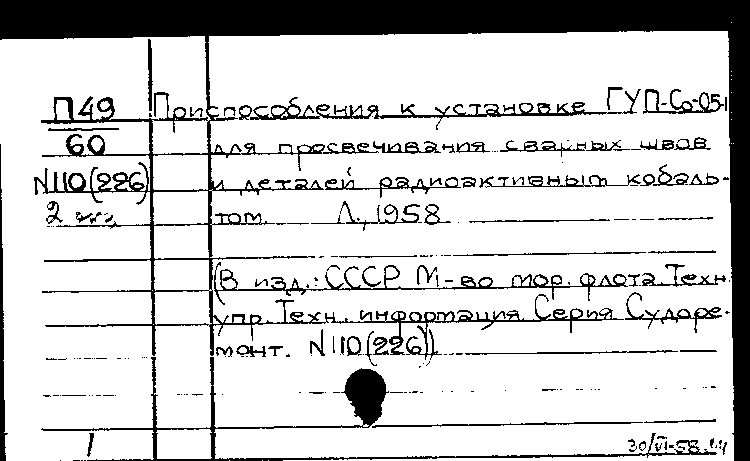 П49
60
N110(226)
2 экз.
Приспособления к установке ГУП-Со-05-1
для просвечивания сварных швов
и деталей радиоактивным кобаль-
том. Л., 1958
(В изд.: СССР М-во мор. флота. Техн.
упр. Техн. информация. Серия Судоре-
монт. N110(226))
1
30/VI-58